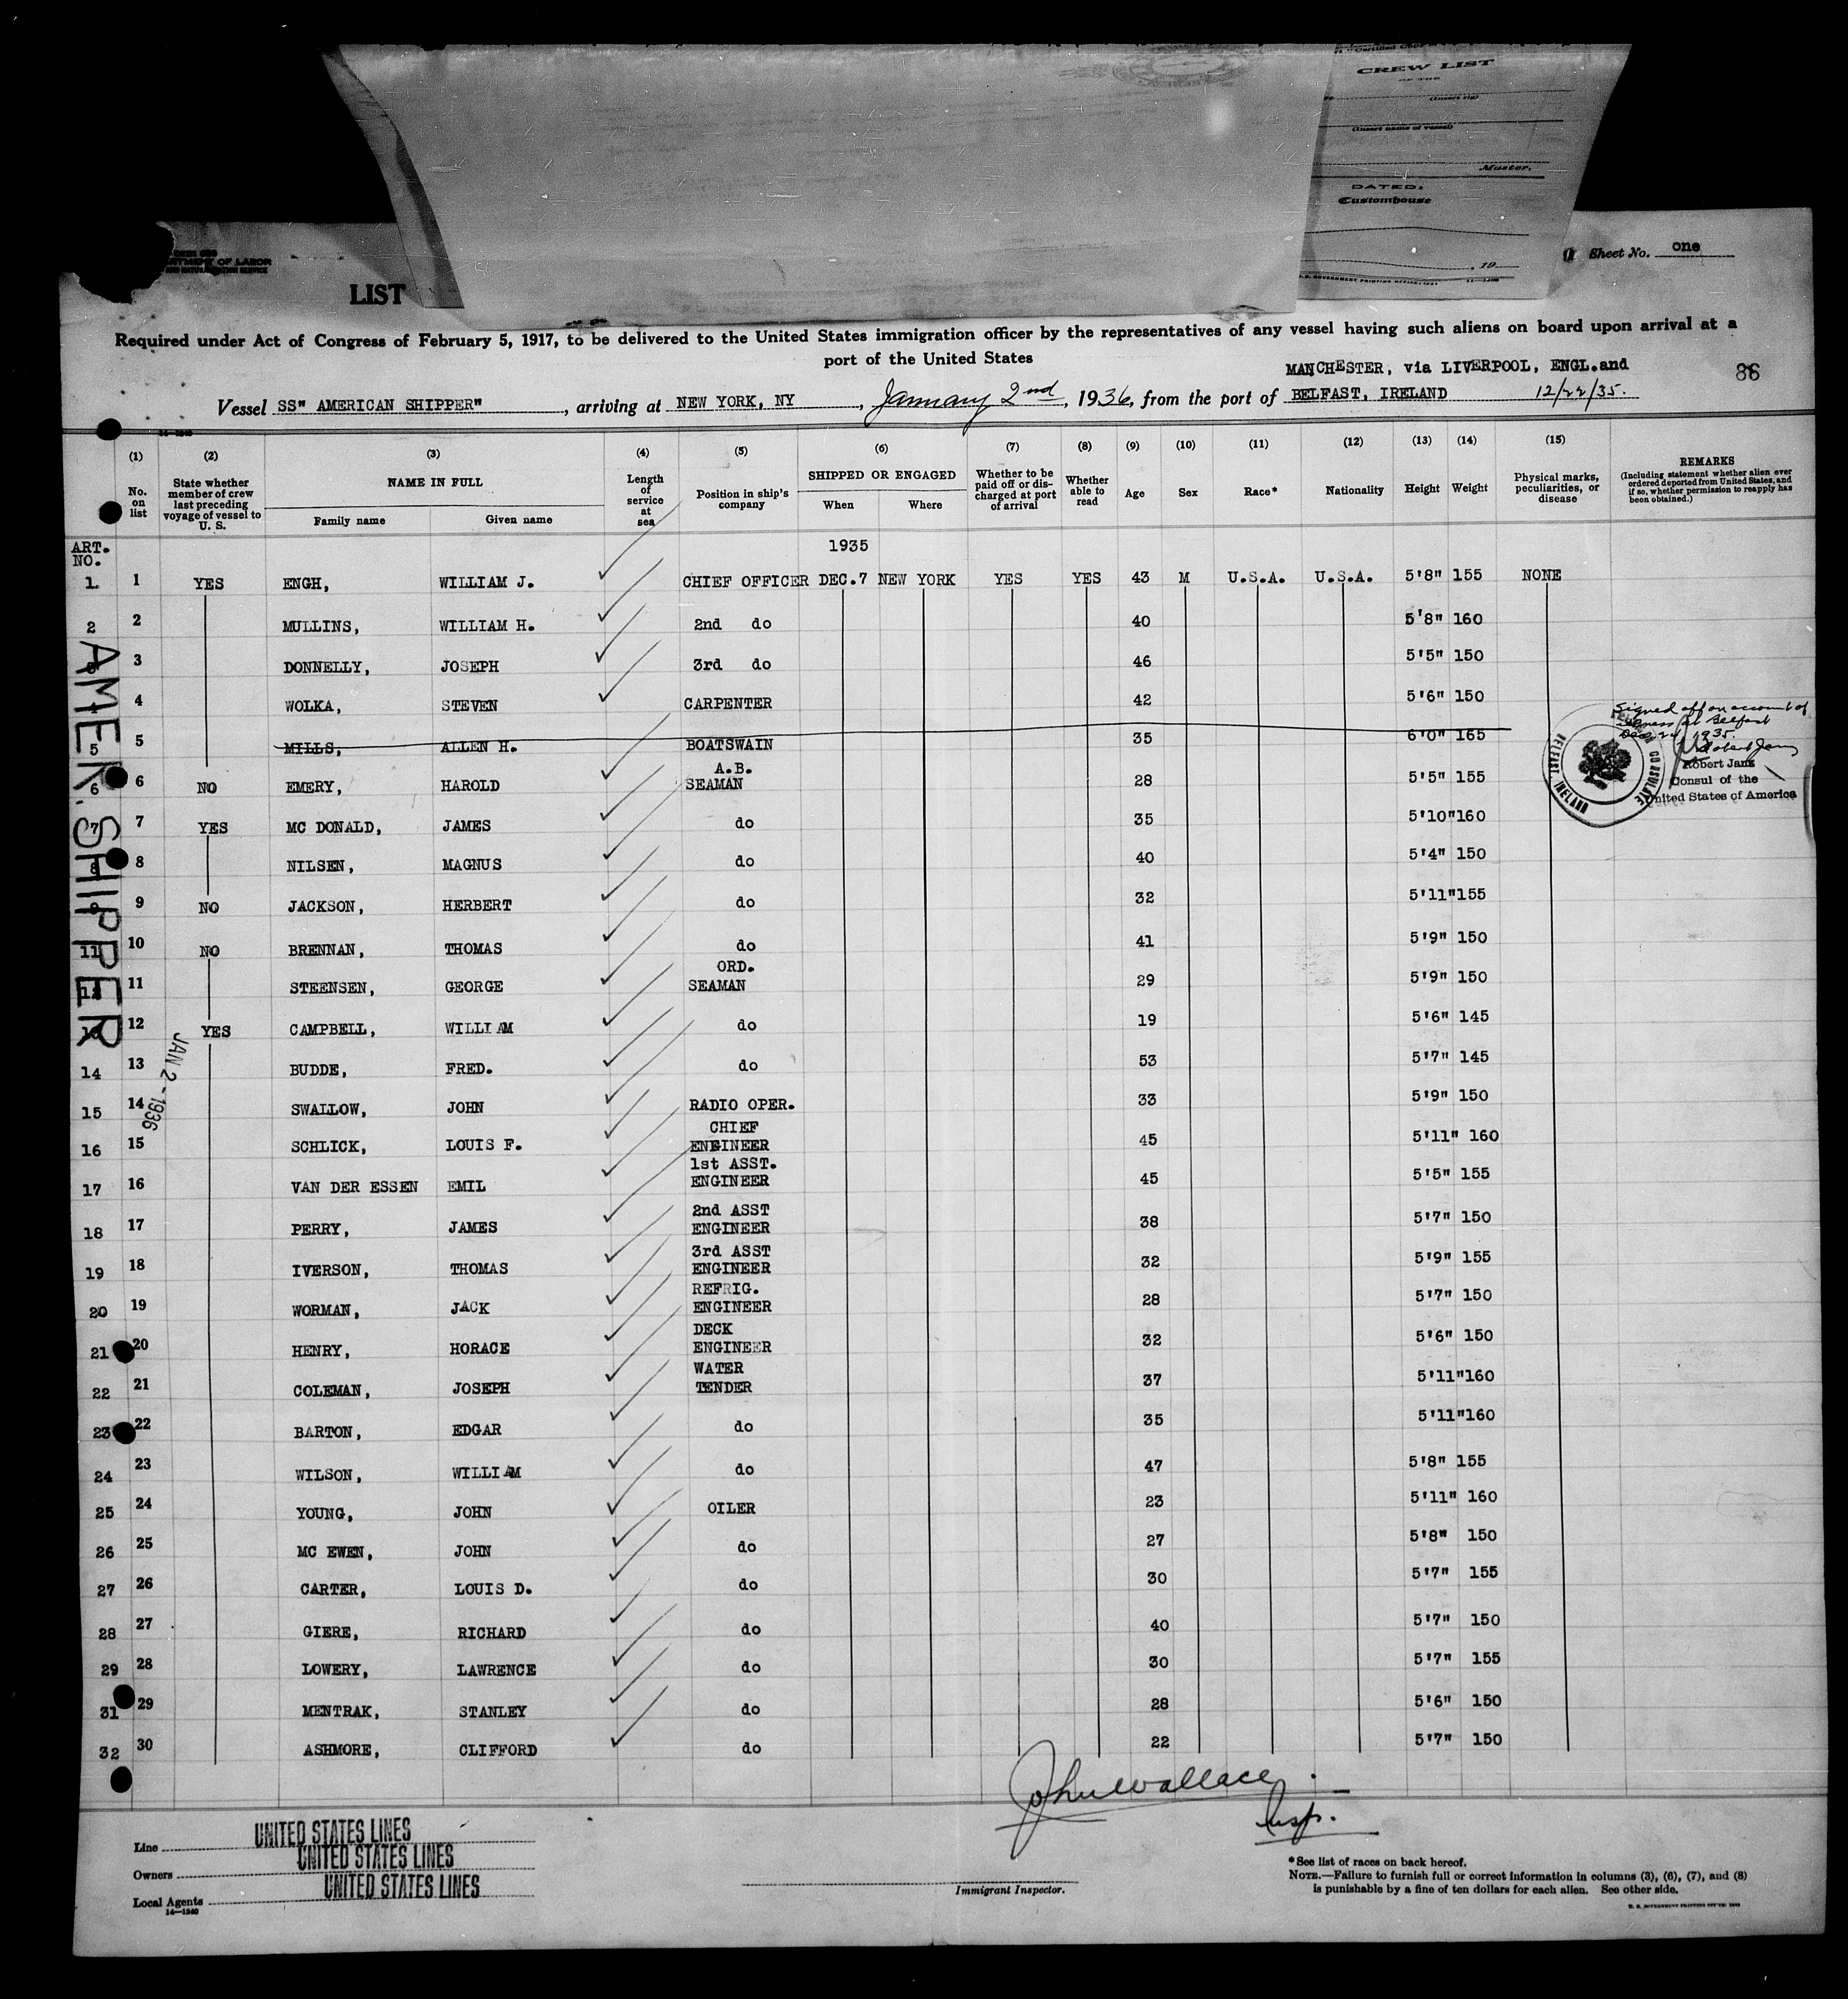 "Certified Copy"
CREW LIST
OF THE
(Insert rig)
(Insert name of vessel)
Master.
DATED:
Customhouse
, 19
U.S. GOVERNMENT PRINTING OFFICE
DEPARTMENT OF LABOR
Sheet No. one
LIST
Required under Act of Congress of February 5, 1917, to be delivered to the United States immigration officer by the representatives of any vessel having such aliens on board upon arrival at a
port of the United States
MANCHESTER, via LIVERPOOL, ENGL.and
86
Vessel SS" AMERICAN SHIPPER" , arriving at NEW YORK, NY , January 2nd, 1936, from the port of BELFAST, IRELAND 12/22/35.
(1) (2) (3) (4) (5) (6) (7) (8) (9) (10) (11) (12) (13) (14) (15)
No. on list
State whether member of crew last preceding voyage of vessel to U. S.
NAME IN FULL
Family name Given name
Length of service at sea
Position in ship's company
SHIPPED OR ENGAGED
When Where
Whether to be paid off or discharged at port of arrival
Whether able to read
Age Sex Race* Nationality Height Weight
Physical marks, peculiarities, or disease
REMARKS
(Including statement whether alien ever ordered deported from United States, and if so, whether permission to reapply has been obtained.)
ART. NO. 1935
1 1 YES ENGH, WILLIAM J. CHIEF OFFICER DEC.7 NEW YORK YES YES 43 M U.S.A. U.S.A. 5'8" 155 NONE
2 2 MULLINS, WILLIAM H. 2nd do 40 5'8" 160
3 DONNELLY, JOSEPH 3rd do 46 5'5" 150
4 WOLKA, STEVEN CARPENTER 42 5'6" 150
5 5 MILLS, ALLEN H. BOATSWAIN 35 6'0" 165
6 6 NO EMERY, HAROLD A.B. SEAMAN 28 5'5" 155
7 7 YES MC DONALD, JAMES do 35 5'10" 160
8 8 NILSEN, MAGNUS do 40 5'4" 150
9 9 NO JACKSON, HERBERT do 32 5'11" 155
11 10 NO BRENNAN, THOMAS do 41 5'9" 150
12 11 STEENSEN, GEORGE ORD. SEAMAN 29 5'9" 150
12 YES CAMPBELL, WILLIAM do 19 5'6" 145
14 13 BUDDE, FRED. do 53 5'7" 145
15 14 SWALLOW, JOHN RADIO OPER. 33 5'9" 150
16 15 SCHLICK, LOUIS F. CHIEF ENGINEER 45 5'11" 160
17 16 VAN DER ESSEN EMIL 1st ASST. ENGINEER 45 5'5" 155
18 17 PERRY, JAMES 2nd ASST ENGINEER 38 5'7" 150
19 18 IVERSON, THOMAS 3rd ASST ENGINEER 32 5'9" 155
20 19 WORMAN, JACK REFRIG. ENGINEER 28 5'7" 150
21 20 HENRY, HORACE DECK ENGINEER 32 5'6" 150
22 21 COLEMAN, JOSEPH WATER TENDER 37 5'11" 160
23 22 BARTON, EDGAR do 35 5'11" 160
24 23 WILSON, WILLIAM do 47 5'8" 155
25 24 YOUNG, JOHN OILER 23 5'11" 160
26 25 MC EWEN, JOHN do 27 5'8" 150
27 26 CARTER, LOUIS D. do 30 5'7" 155
28 27 GIERE, RICHARD do 40 5'7" 150
29 28 LOWERY, LAWRENCE do 30 5'7" 155
31 29 MENTRAK, STANLEY do 28 5'6" 150
32 30 ASHMORE, CLIFFORD do 22 5'7" 150
AMER. SHIPPER
JAN 2 - 1936
Signed off on account of
illness at Belfast
1935.
Robert Janz
Robert Janz
Consul of the
United States of America
CONSULATE
BELFAST, IRELAND
John Wallace
Insp.
Line UNITED STATES LINES
Owners UNITED STATES LINES
Local Agents UNITED STATES LINES
14—1240
Immigrant Inspector.
*See list of races on back hereof.
NOTE.—Failure to furnish full or correct information in columns (3), (6), (7), and (8)
is punishable by a fine of ten dollars for each alien. See other side.
U. S. GOVERNMENT PRINTING OFFICE